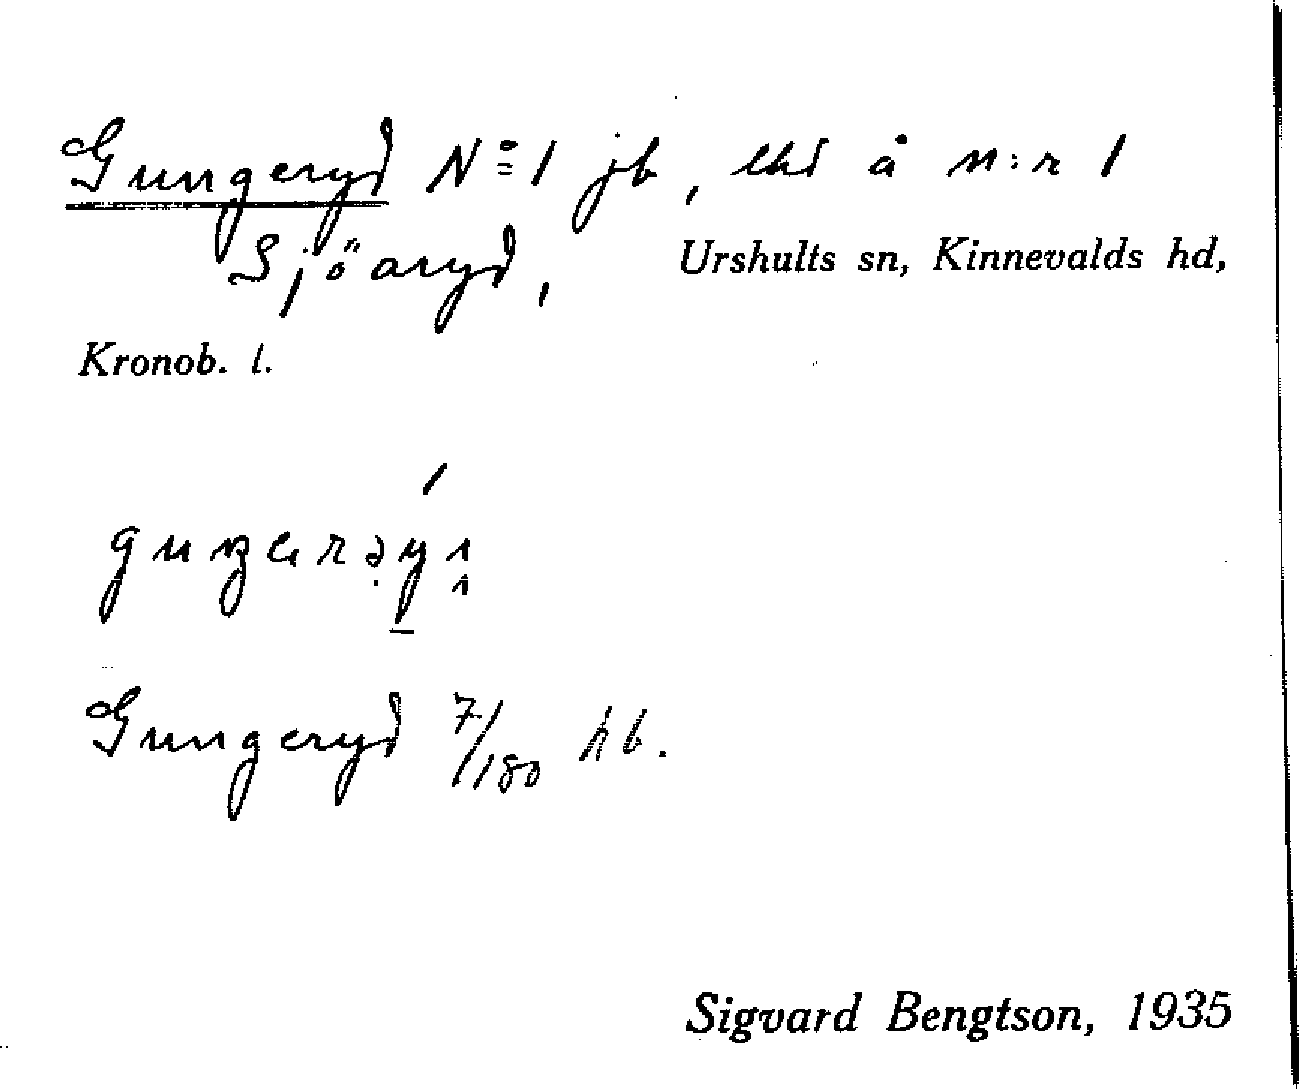 Gungeryd Nº 1 jb, lhd å n:r 1
Sjöaryd, Urshults sn, Kinnevalds hd,
Kronob. l.
Gungeryd 7/180 hb.
Sigvard Bengtson, 1935